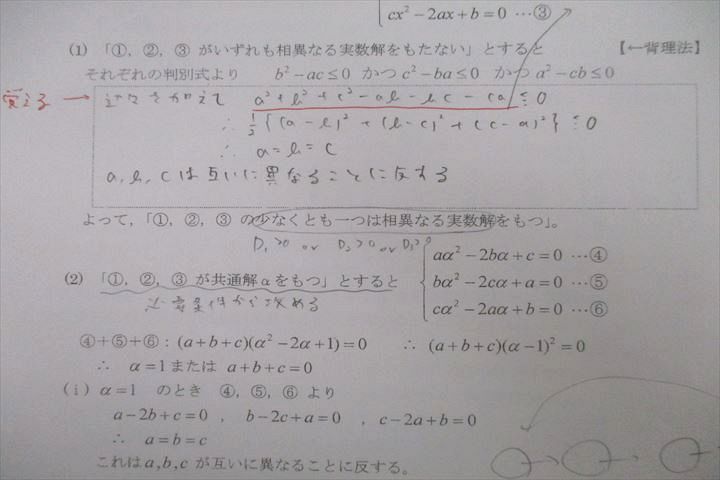 cx²−2ax+b=0 …③
(1) 「①，②，③ がいずれも相異なる実数解をもたない」とすると 【←背理法】
それぞれの判別式より b²−ac≤0 かつ c²−ba≤0 かつ a²−cb≤0
覚える → 辺々を加えて a²+b²+c²−ab−bc−ca≦0
∴ ½{(a−b)²+(b−c)²+(c−a)²}≦0
∴ a=b=c
a,b,cは互いに異なることに反する
よって，「①，②，③ の少なくとも一つは相異なる実数解をもつ」。
D₁>0 or D₂>0 or D₃>0
aα²−2bα+c=0 …④
(2) 「①，②，③ が共通解αをもつ」とすると bα²−2cα+a=0 …⑤
必要条件から攻める
cα²−2aα+b=0 …⑥
④+⑤+⑥：(a+b+c)(α²−2α+1)=0 ∴ (a+b+c)(α−1)²=0
∴ α=1または a+b+c=0
(ⅰ) α=1 のとき ④，⑤，⑥ より
a−2b+c=0 ， b−2c+a=0 ，c−2a+b=0
∴ a=b=c
これはa,b,c が互いに異なることに反する。